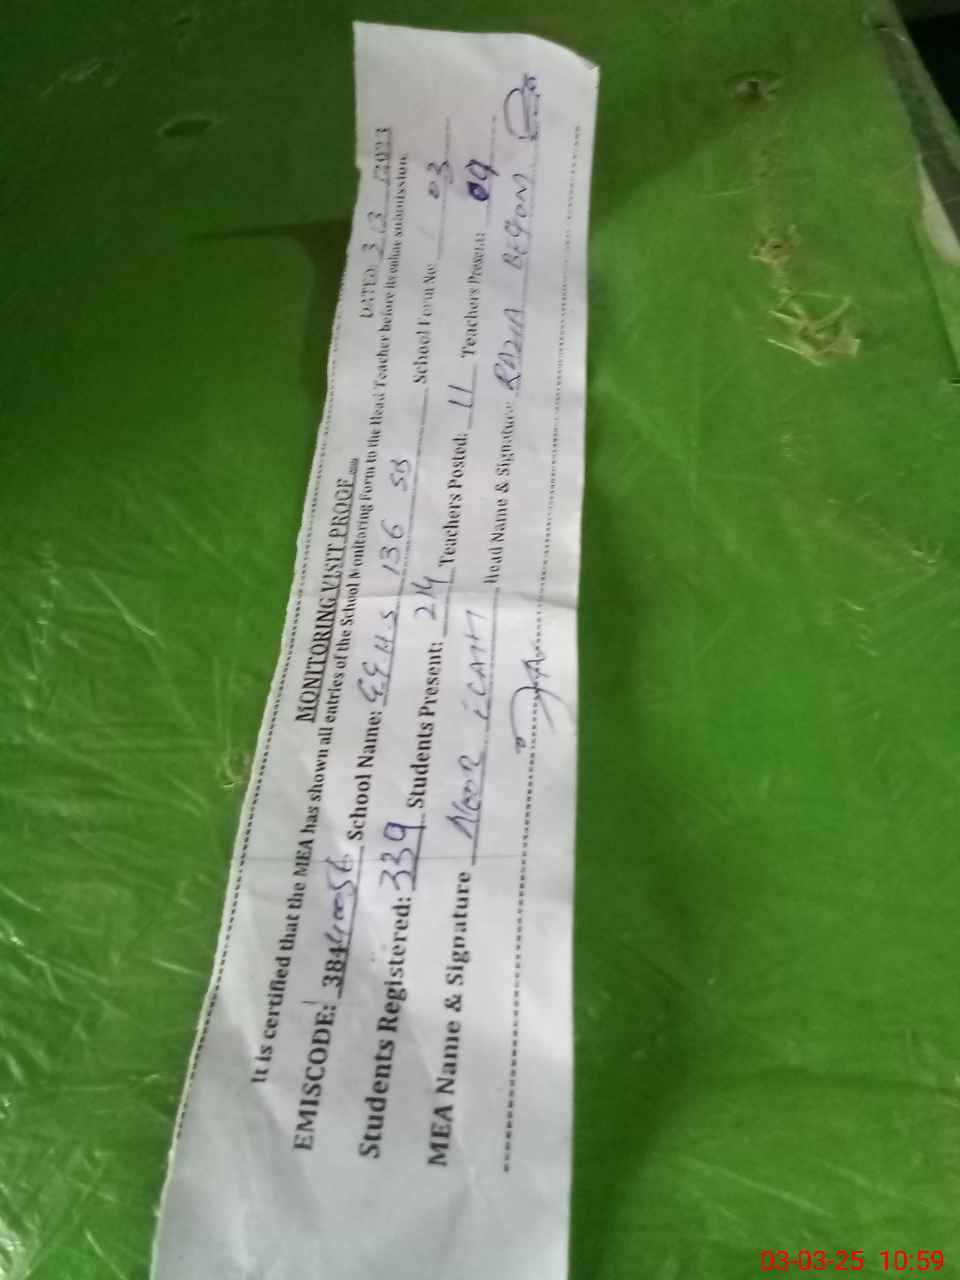 MONITORING VISIT PROOF
DATED: 3/3/2023
It is certified that the MEA has shown all entries of the School Monitoring Form to the Head Teacher before its online submission.
EMISCODE: 38440056 School Name: GGHS 136 SB School Form No: 03
Students Registered: 339 Students Present: 214 Teachers Posted: 11 Teachers Present: 09
MEA Name & Signature NOOR ELAHI Head Name & Signature: RAZIA BEGUM
03-03-25 10:59